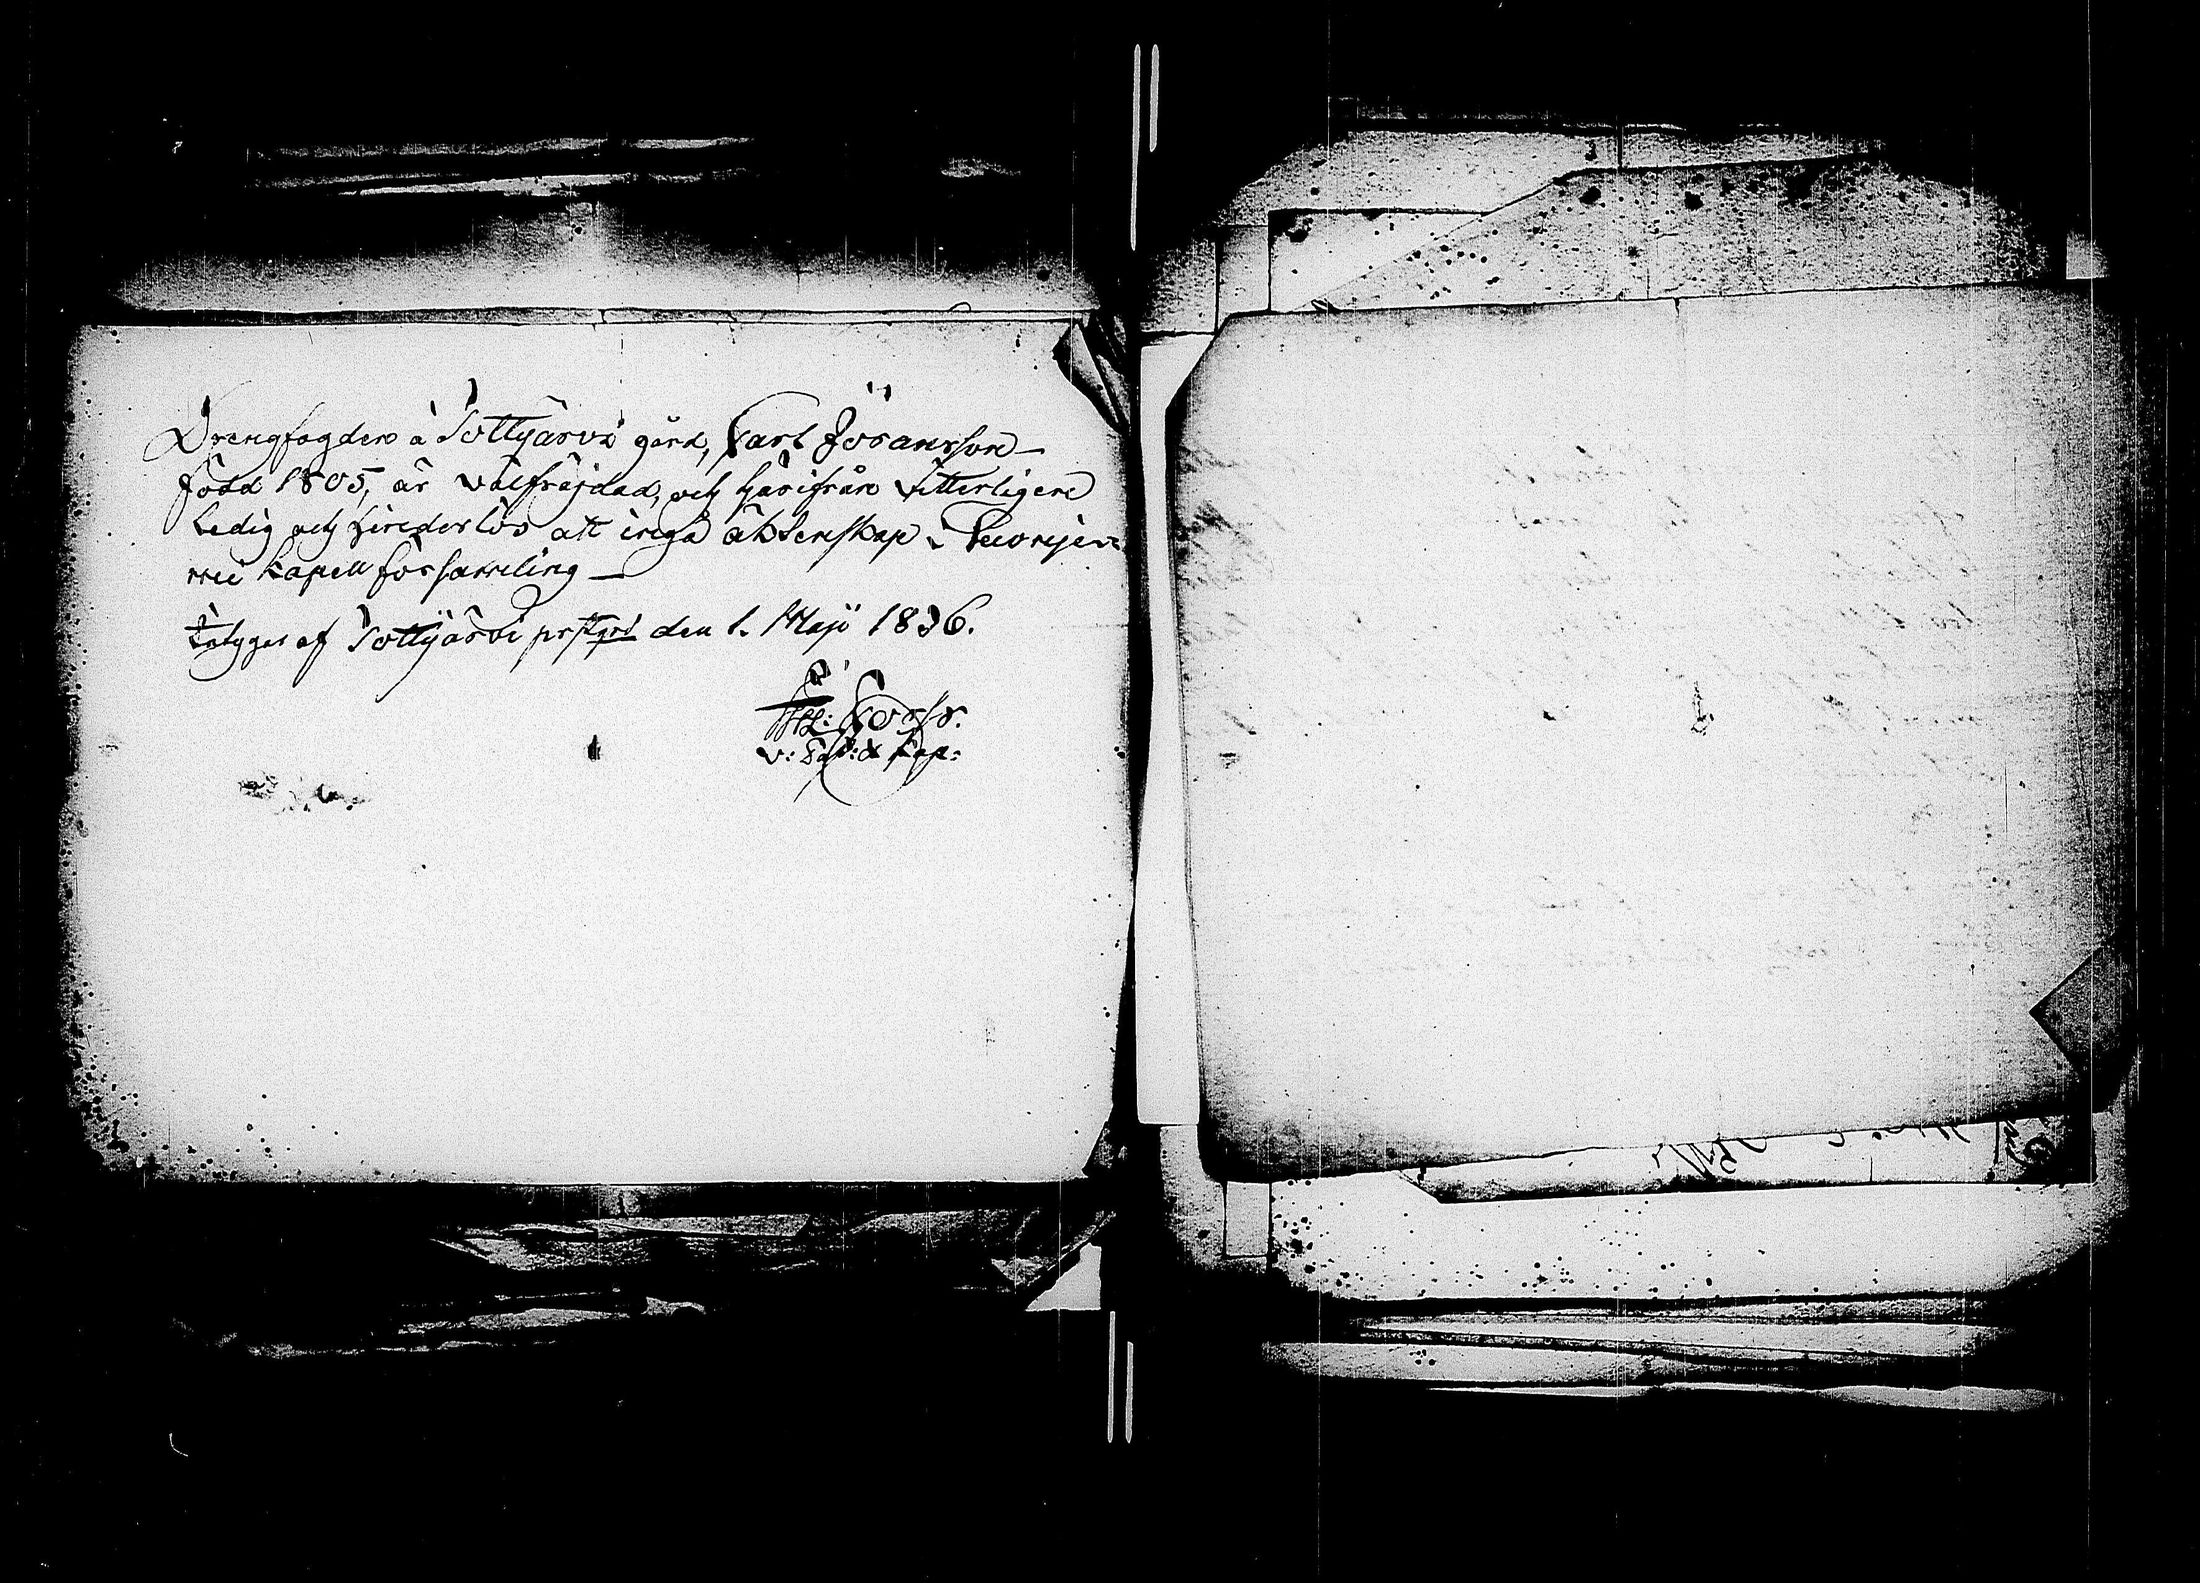 Drengfogden å Tottjärvi gård, Carl Jöransson
född 1805, är välfräjdad, och härifrån vitterligen
ledig och hinderlös att ingå äktenskap i Kuornje-
mei Kapell församling
Intygar af Tottjärvi prstgrd den 1. Maji 1836.
v: Past: & Kap: